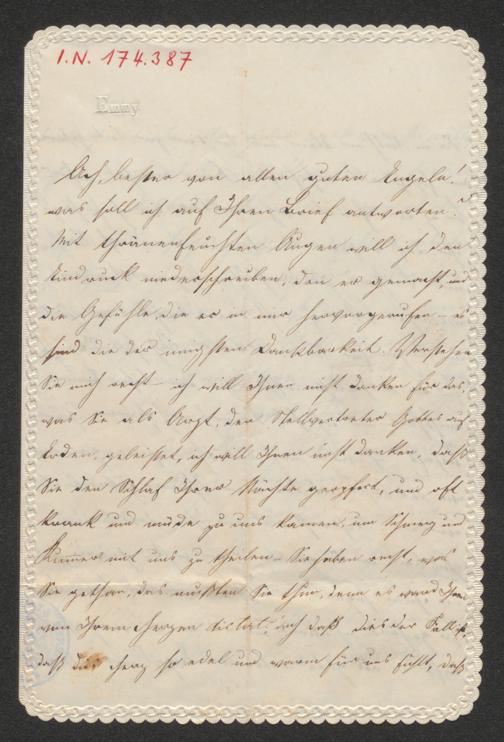 I.N. 174.387
Emmy
Ach, bester von allen guten Engeln!
was soll ich auf Ihren Brief antworten?
Mit thränenfeuchten Augen will ich den
Eindruck niederschreiben, den er gemacht, und
die Gefühle, die er in mir hervorgerufen – es
sind die der innigsten Dankbarkeit. Verstehen
Sie mich recht – ich will Ihnen nicht danken für das,
was Sie als Arzt, der Stellvertreter Gottes auf
Erden, geleistet, ich will Ihnen nicht danken, daß
Sie den Schlaf Ihrer Nächte geopfert, und oft
krank und müde zu uns kamen, um Schmerz und
Kummer mit uns zu theilen – Sie haben recht, was
Sie gethan, das mußten Sie thun, denn es ward Ihnen
von Ihrem Herzen dictirt, doch daß dies der Fall ist,
daß Herz so edel und warm für uns fühlt, daß